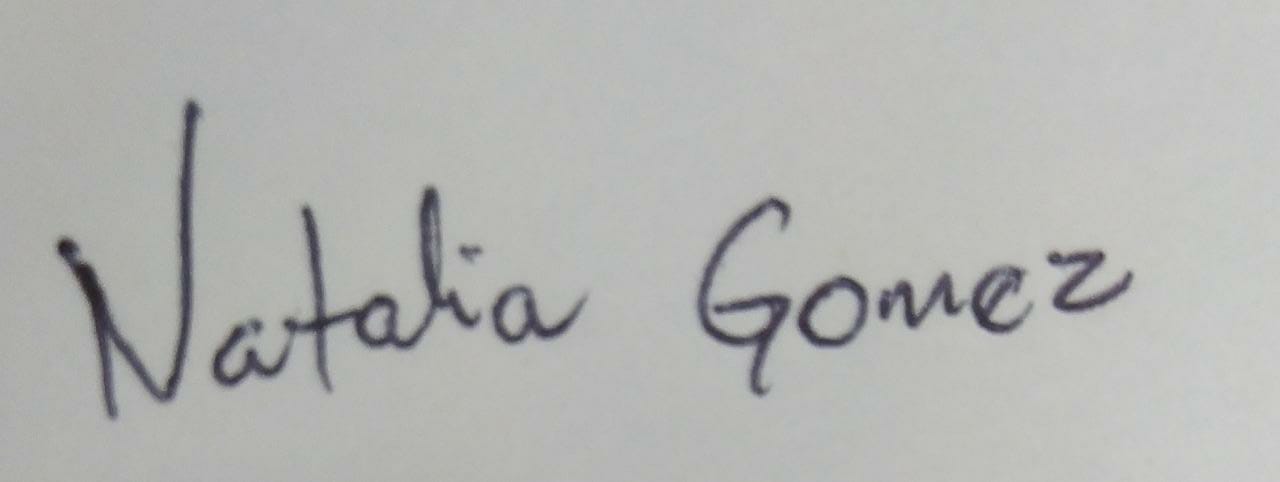 Natalia Gomez